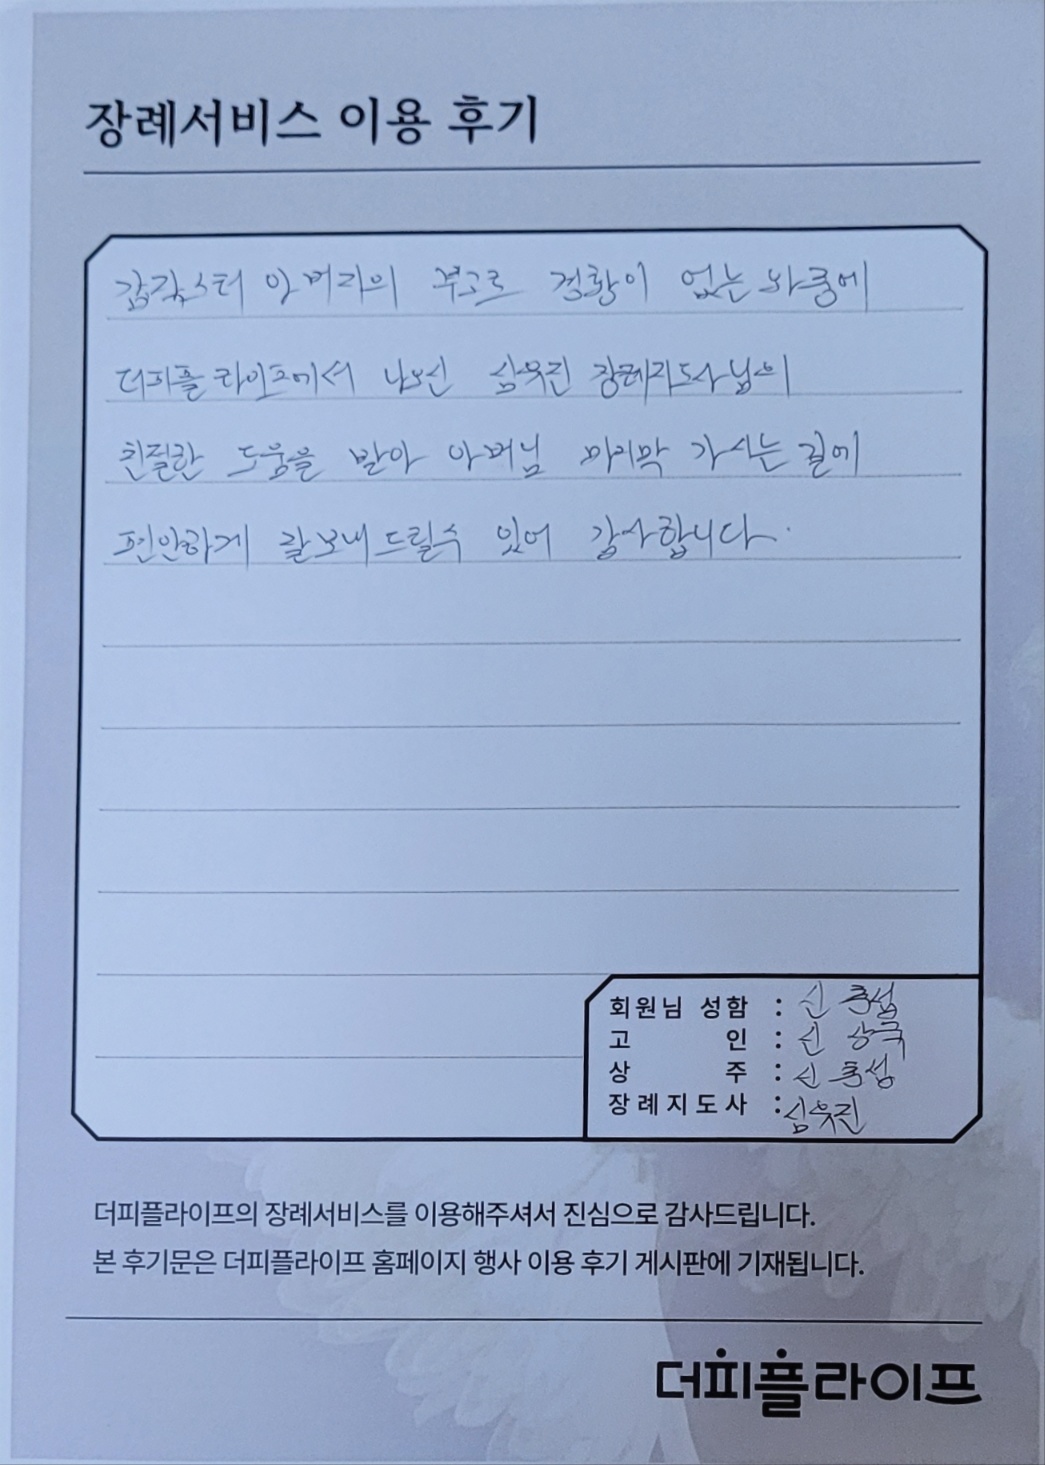 장례서비스 이용 후기
갑작스런 아버지의 부고로 경황이 없는 와중에
더피플 라이프에서 나오신 심유진 장례지도사님의
친절한 도움을 받아 아버님 마지막 가시는 길에
편안하게 잘 보내드릴수 있어 감사합니다.
회원님 성함 : 신
고 인 : 신 상국
상 주 : 신
장례지도사 : 심유진
더피플라이프의 장례서비스를 이용해주셔서 진심으로 감사드립니다.
본 후기문은 더피플라이프 홈페이지 행사 이용 후기 게시판에 기재됩니다.
더피플라이프